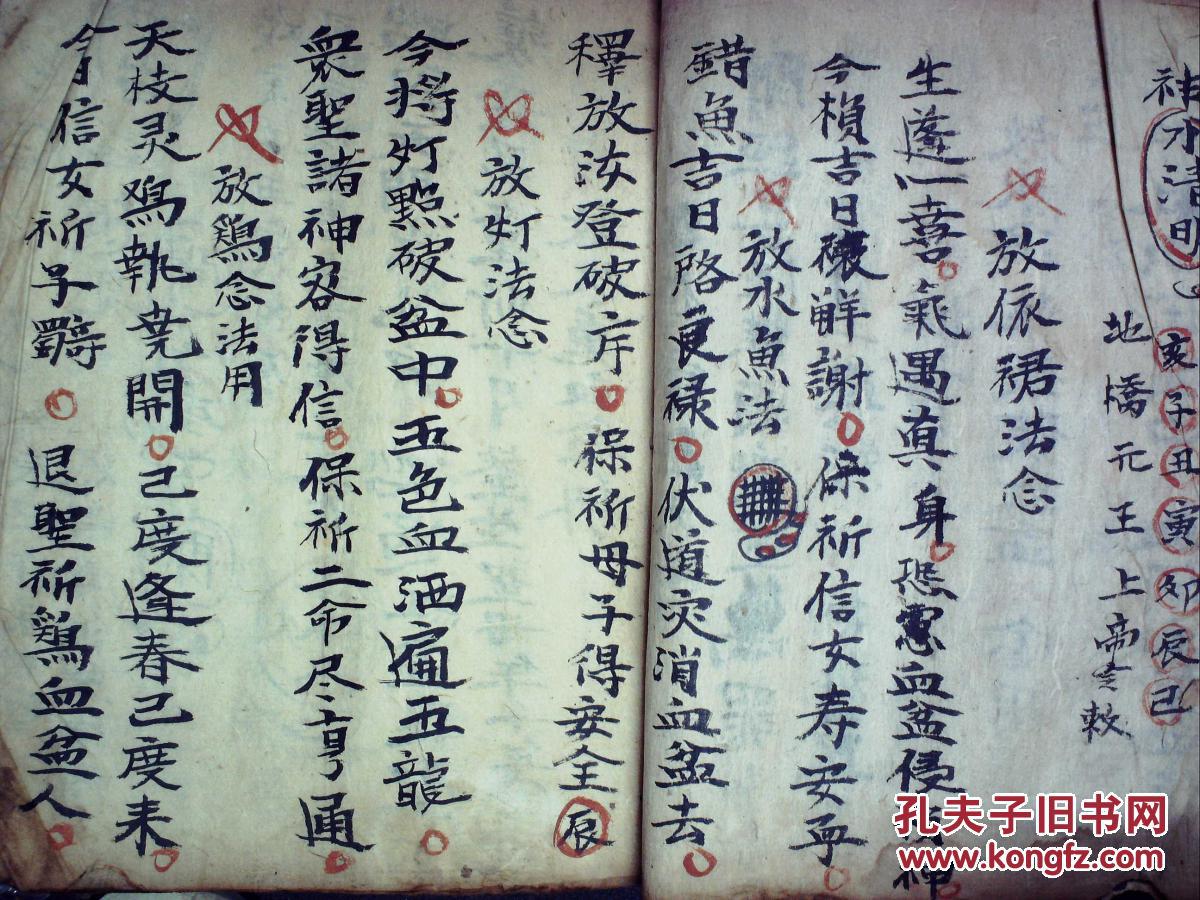 神水清明
亥子丑寅卯辰巳
地橋元王上帝敕
放依裙法念
生蓬一喜氣遇真身恐血盆侵神
今槓吉日禳解謝保祈信女寿安
放水魚法
錯魚吉日啓良禄伏道灾消血盆去
釋放汝登破斥保祈母子得安全辰
放灯法念
今將灯點破盆中五色血洒遍五龍
衆聖諸神容得信保祈二命尽亨通
放鷄念法用
天枝灵鳮執尭開己度逢春己度耒
今日信女祈子退聖祈鷄血盆人
孔夫子旧书网
www.kongfz.com